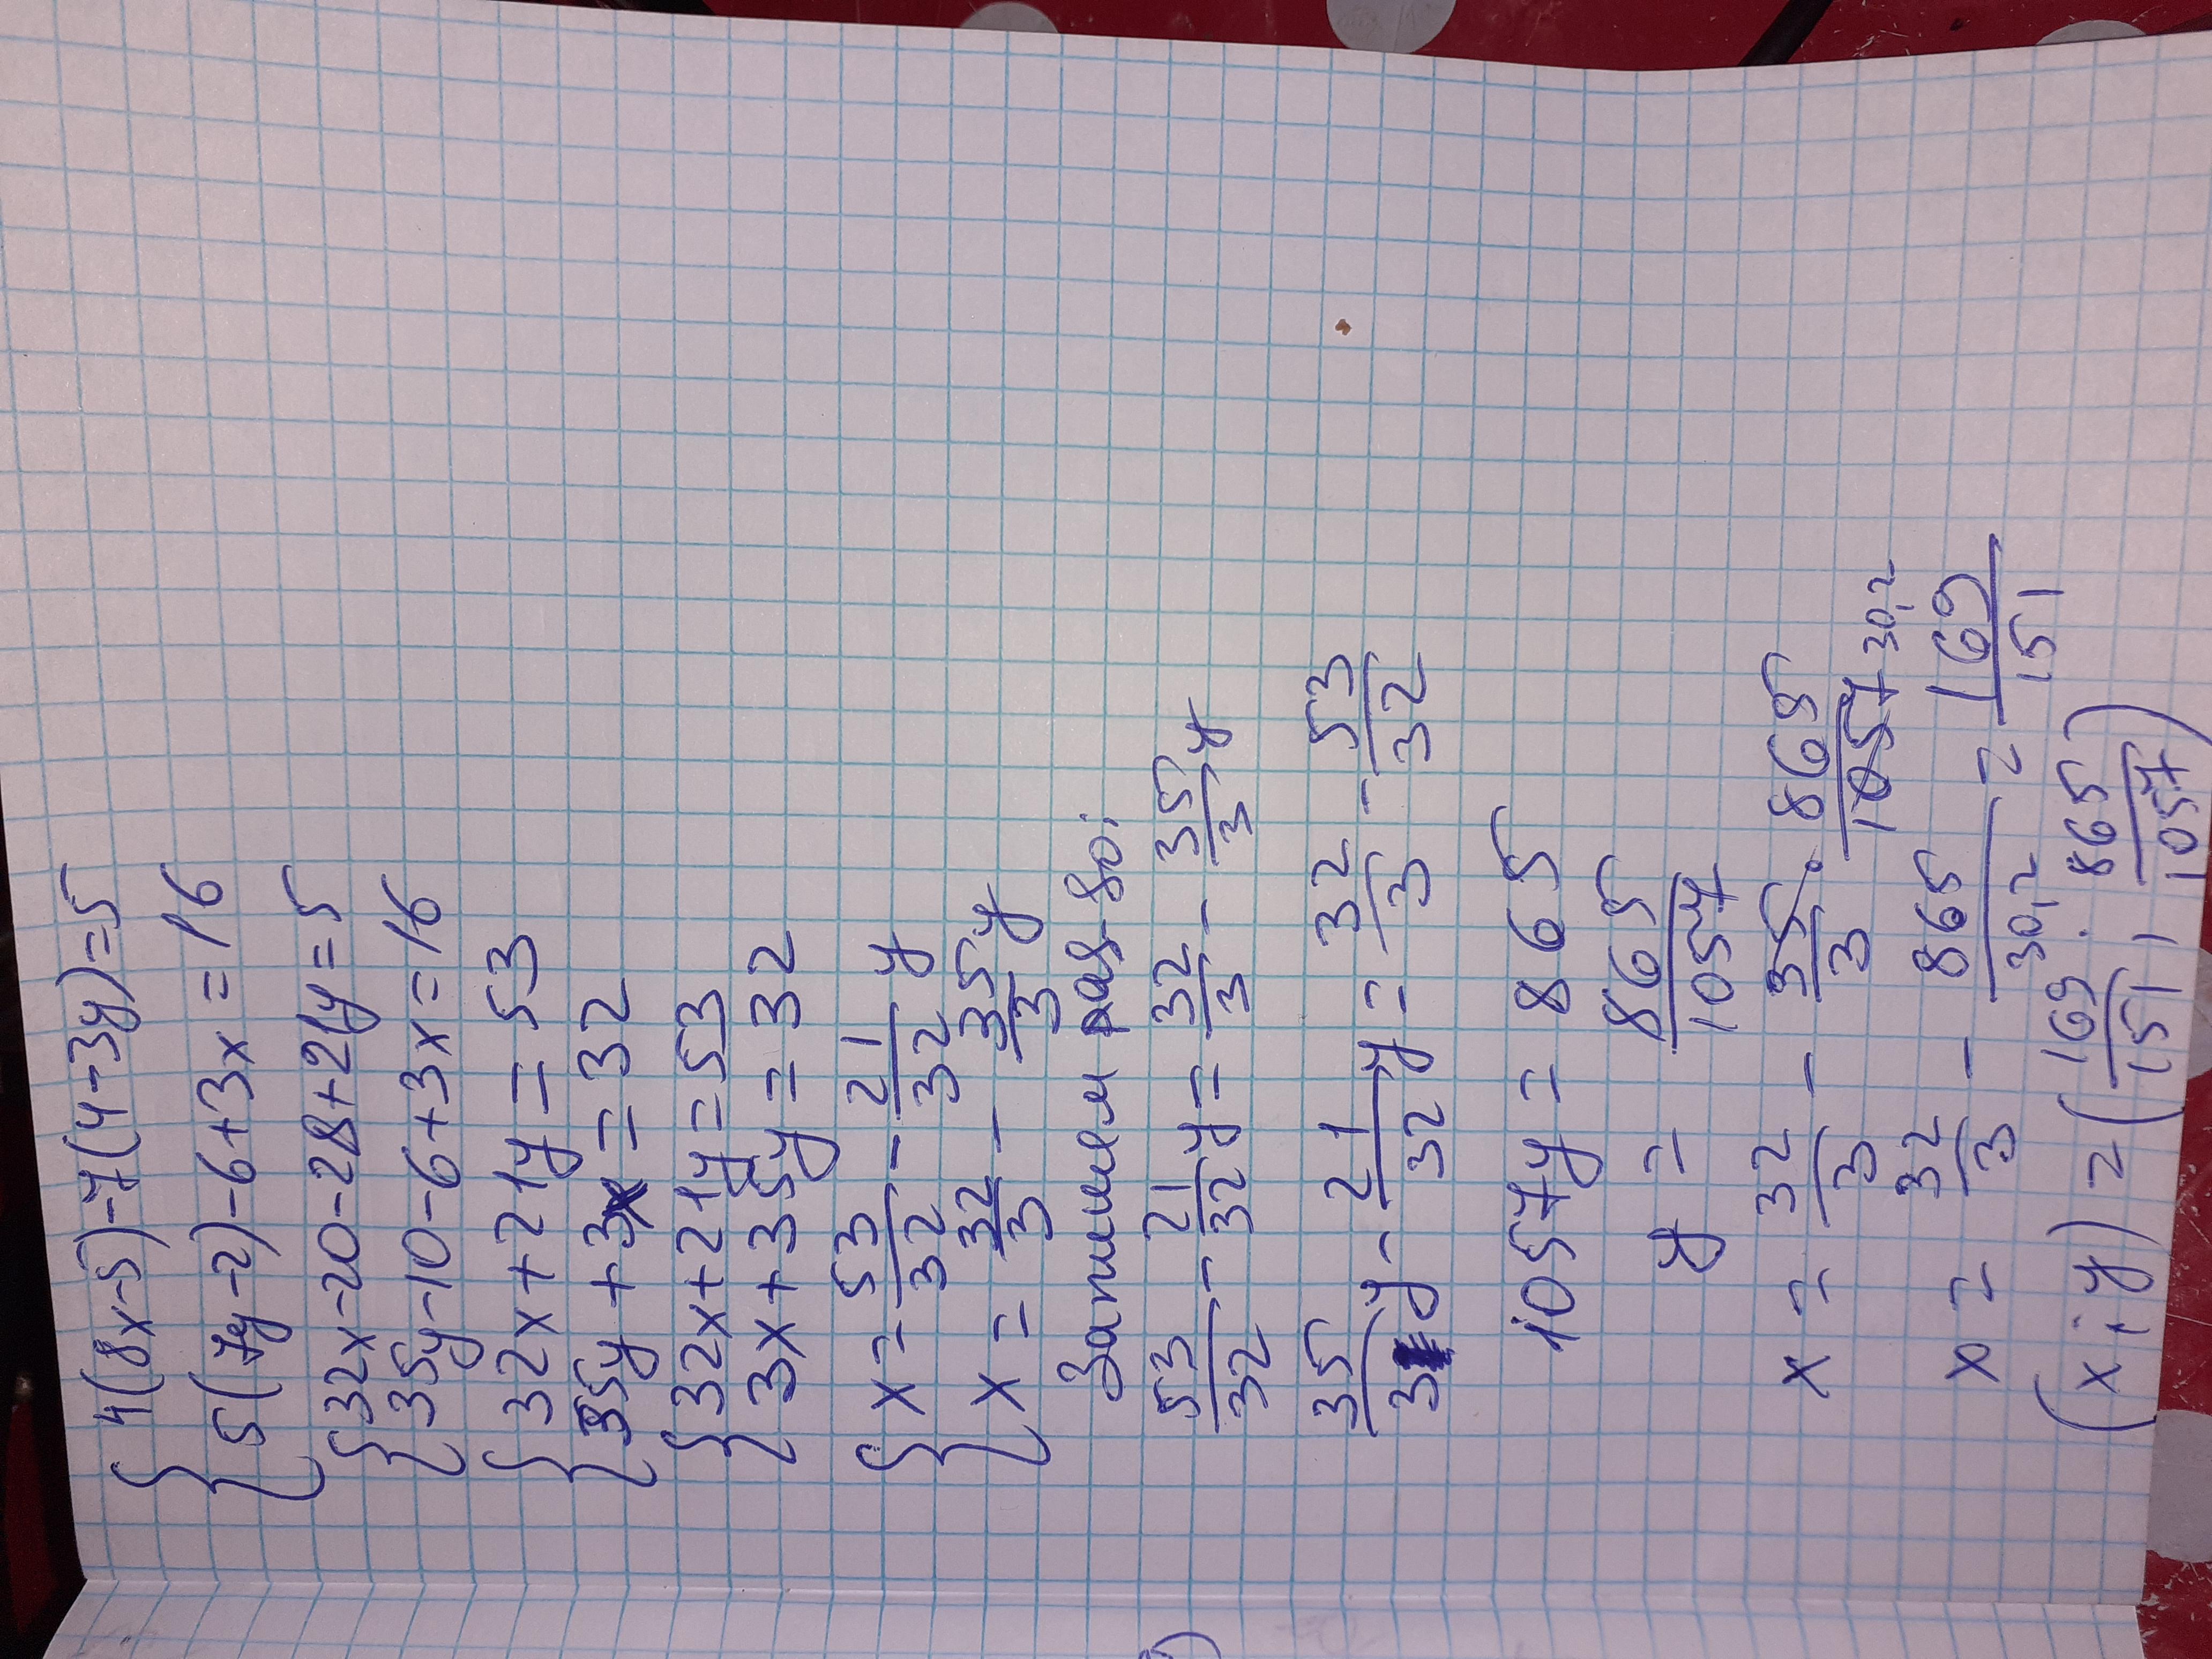 { 4(8x-5)-7(4-3y)=5
{ 5(7y-2)-6+3x=16
{ 32x-20-28+21y=5
{ 35y-10-6+3x=16
{ 32x+21y=53
{ 35y+3x=32
{ 32x+21y=53
{ 3x+35y=32
{ x=53/32-21/32y
{ x=32/3-35/3y
Запишем рав-во:
53/32-21/32y=32/3-35/3y
35/3y-21/32y=32/3-53/32
1057y=865
y=865/1057
x=32/3-35/3·865/1057 30,2
x=32/3-865/30,2=169/151
(x;y)=(169/151; 865/1057)